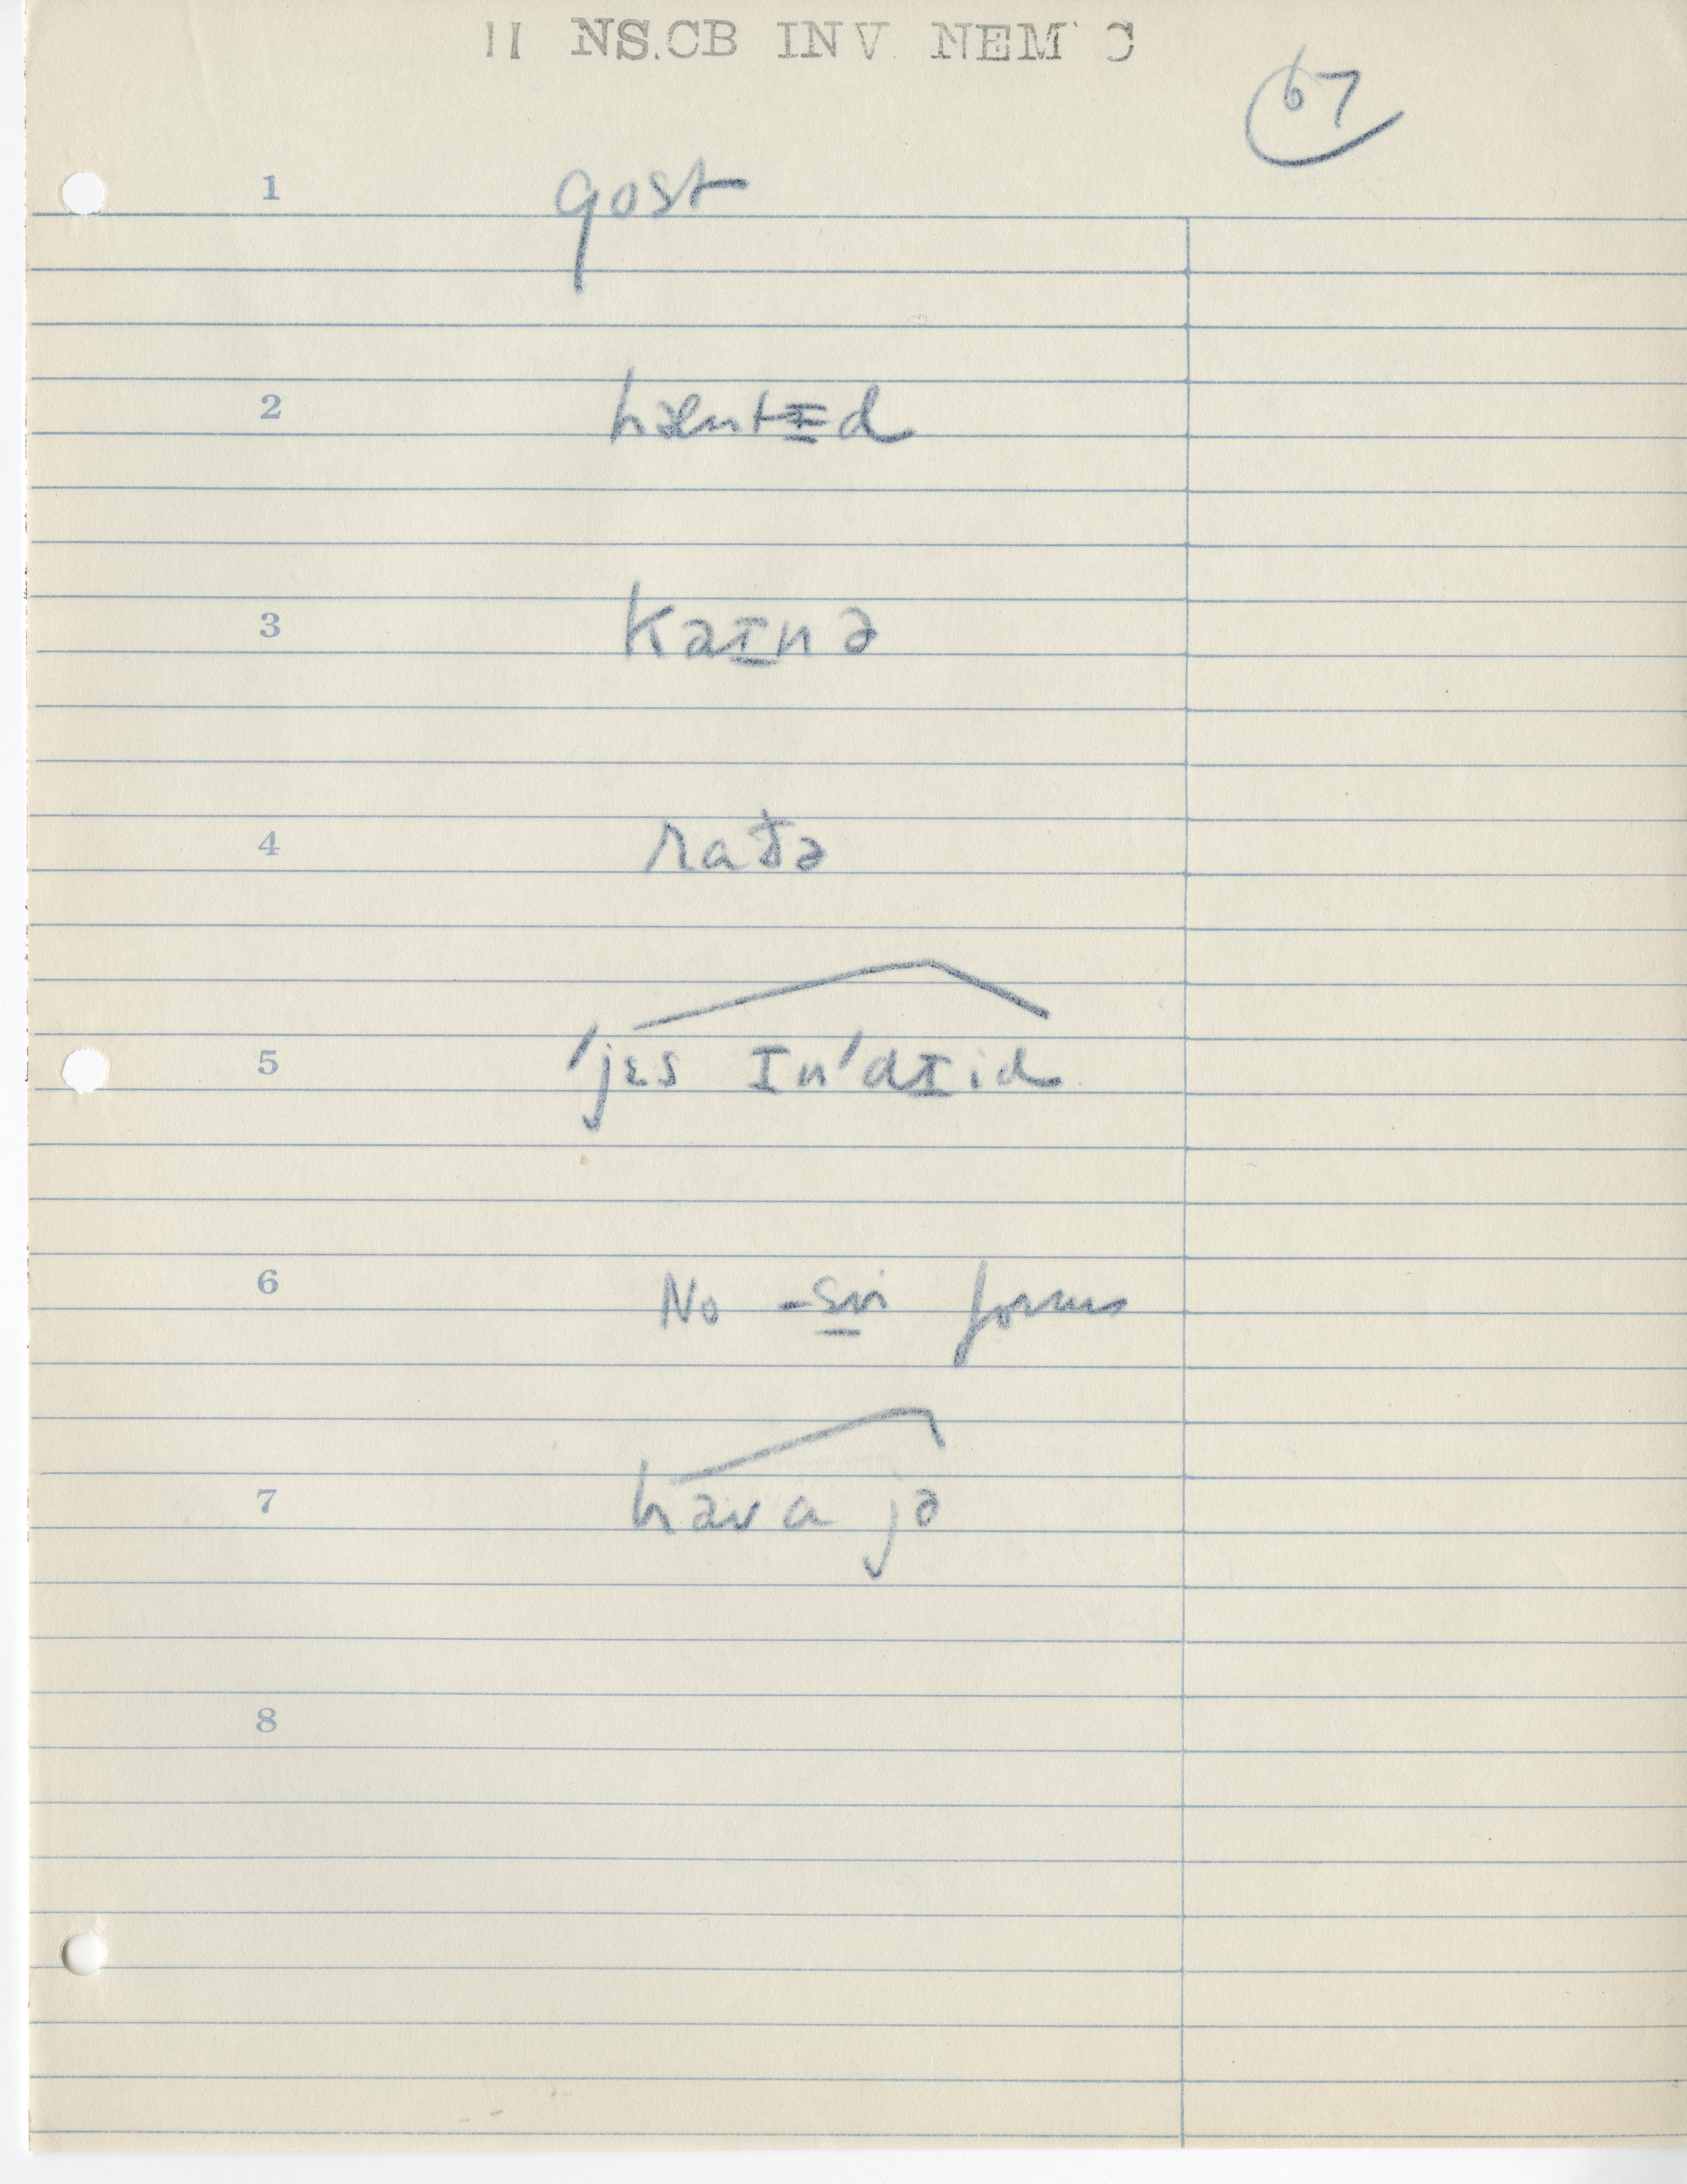 II NS.CB INV. NEM C
67
1 gost
2 hæntɪd
3 kaɪnə
4 rað̵ə
5 ˈjɛs ɪnˈdɪid
6 No -sın forms
7 havə jə
8